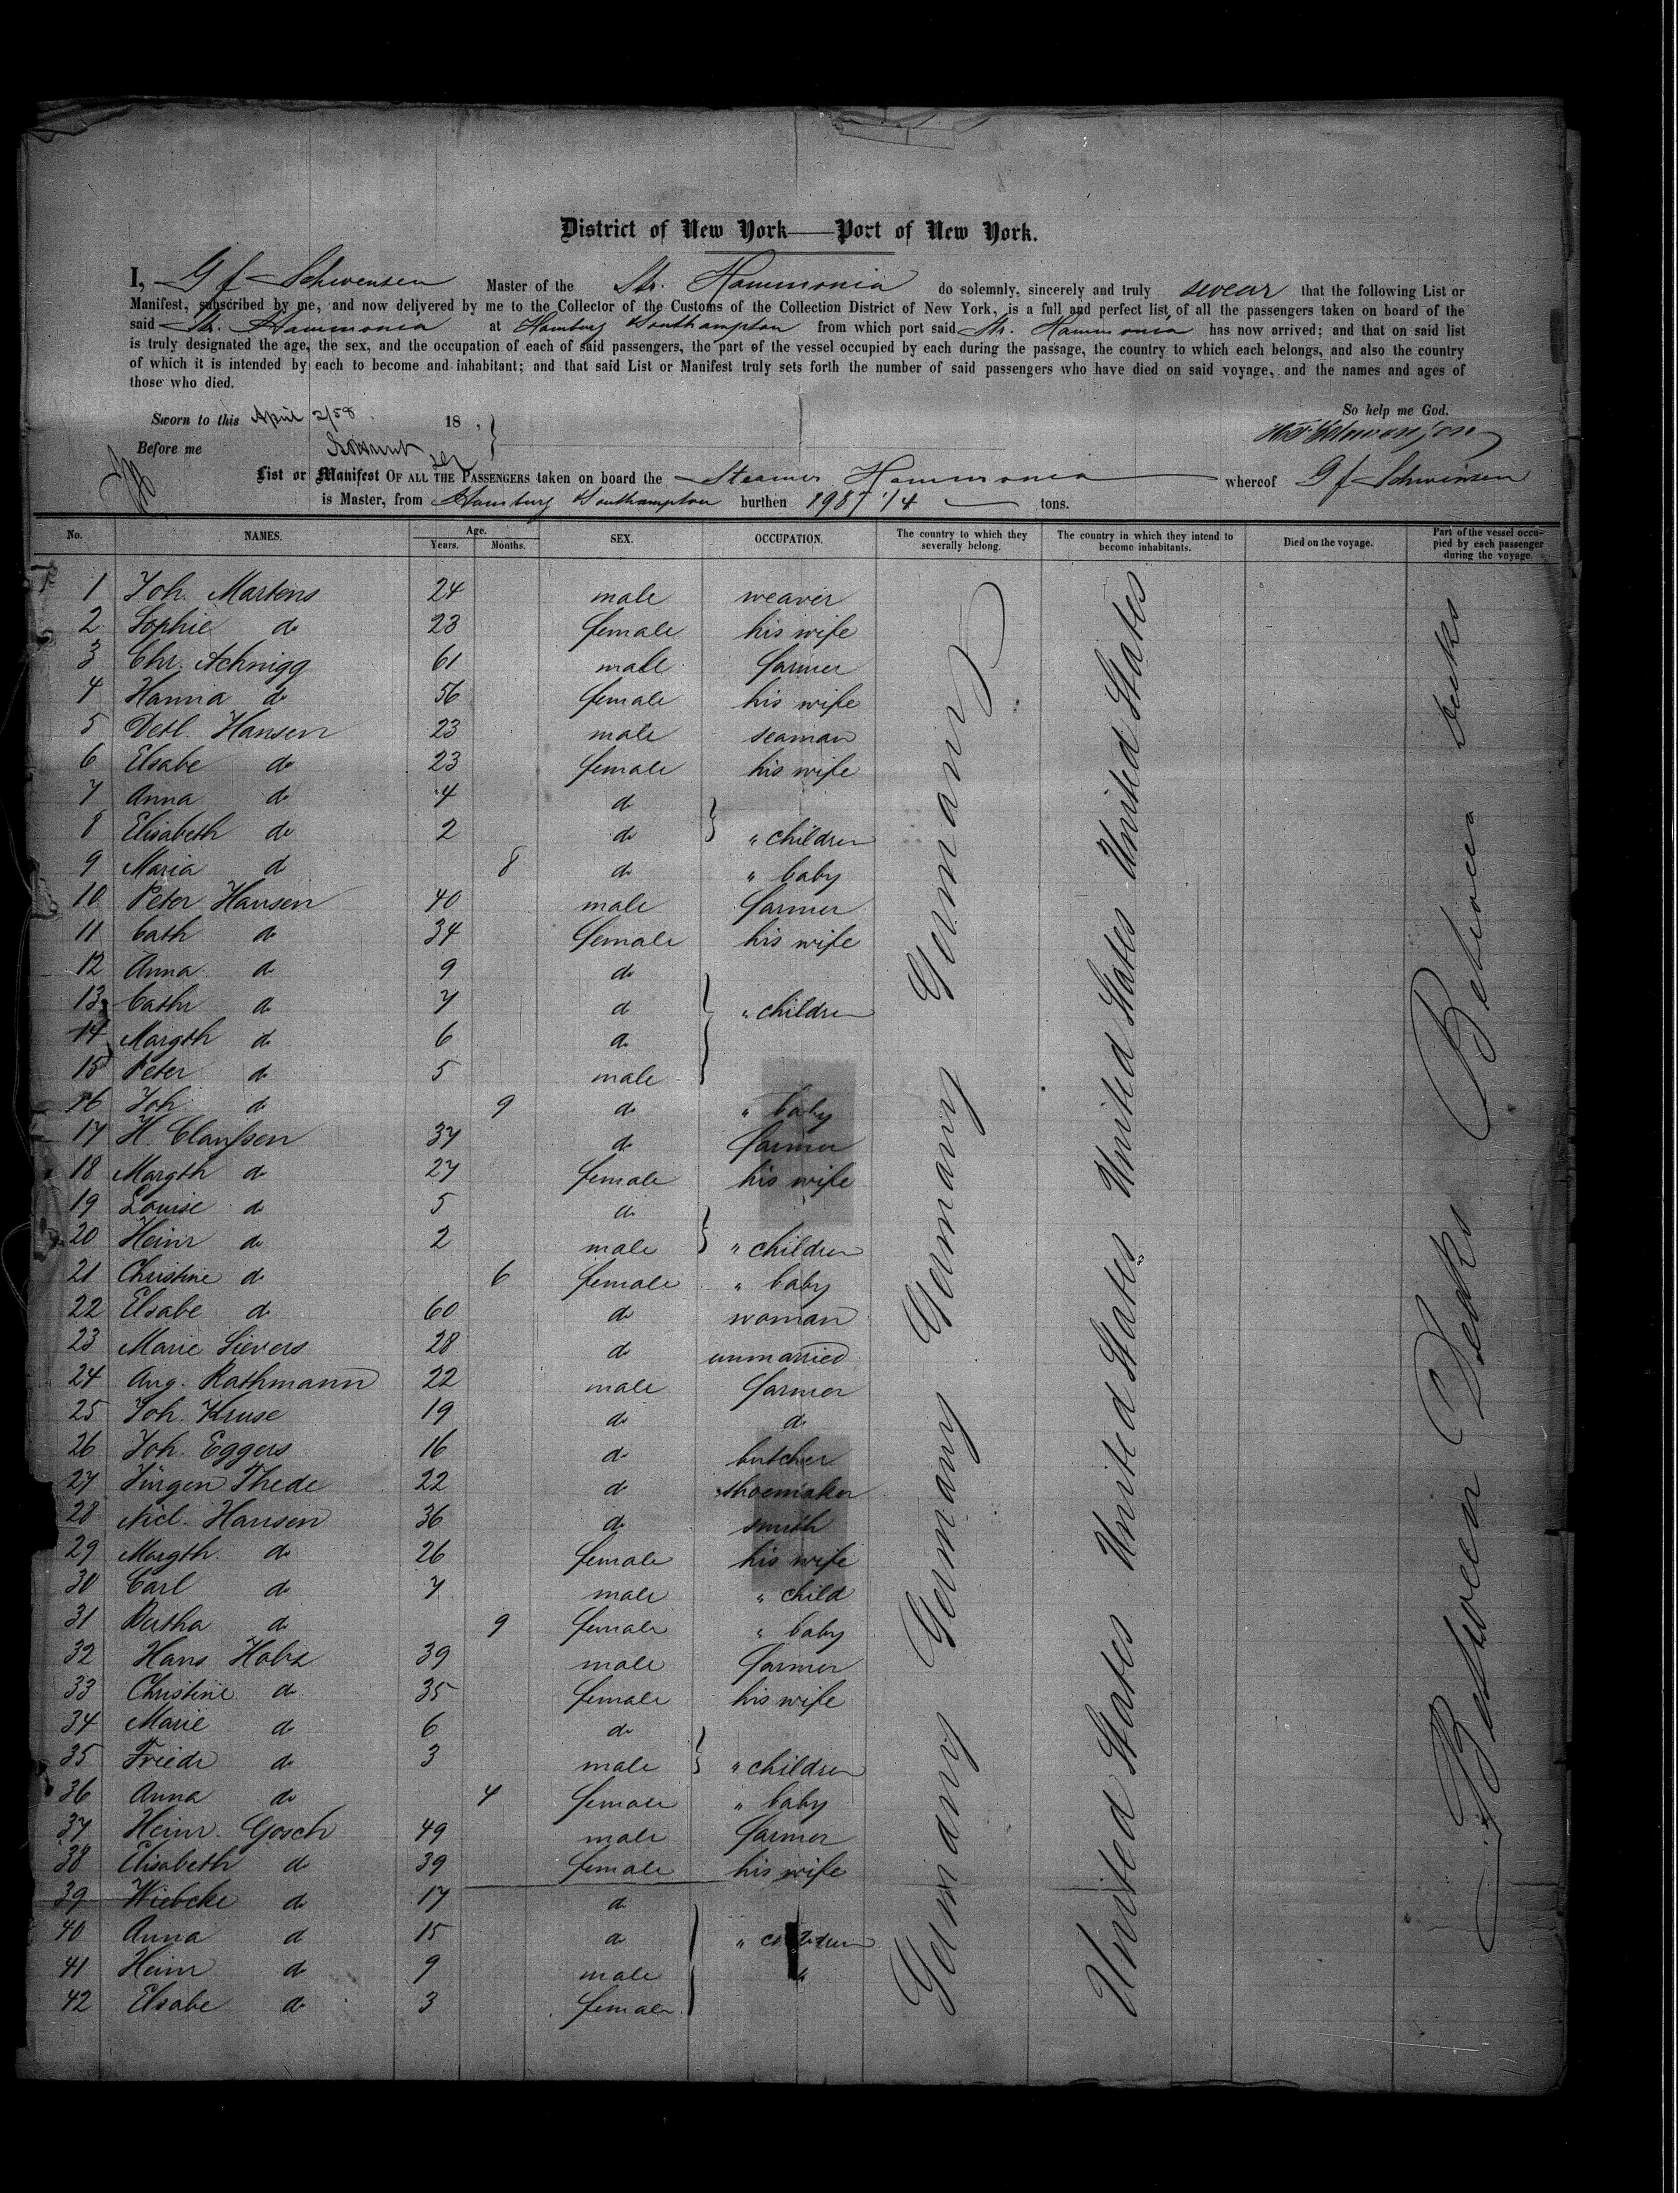 District of New York—Port of New York.
I, G f Schwensen Master of the Str. Hammonia do solemnly, sincerely and truly swear that the following List or
Manifest, subscribed by me, and now delivered by me to the Collector of the Customs of the Collection District of New York, is a full and perfect list of all the passengers taken on board of the
said Str. Hammonia at Hamburg Southampton from which port said Str. Hammonia has now arrived; and that on said list
is truly designated the age, the sex, and the occupation of each of said passengers, the part of the vessel occupied by each during the passage, the country to which each belongs, and also the country
of which it is intended by each to become and inhabitant; and that said List or Manifest truly sets forth the number of said passengers who have died on said voyage, and the names and ages of
those who died.
So help me God.
Sworn to this April 2/58 18 ,
Before me
List or Manifest OF ALL THE PASSENGERS taken on board the Steamer Hammonia whereof G f Schwensen
is Master, from Hamburg Southampton burthen 1987 1/4 tons.
No. NAMES. Age. Years. Months. SEX. OCCUPATION. The country to which they severally belong. The country in which they intend to become inhabitants. Died on the voyage. Part of the vessel occu-pied by each passenger during the voyage.
1 Joh. Martens 24 male weaver
2 Sophie do 23 female his wife
3 Chr. Achnigg 61 male farmer
4 Hanna do 56 female his wife
5 Detl. Hansen 23 male seaman
6 Elsabe do 23 female his wife
7 Anna do 4 do
8 Elisabeth do 2 do " children
9 Maria do 8 do " baby
10 Peter Hansen 40 male farmer
11 Cath do 34 female his wife
12 Anna do 9 do
13 Cathr do 7 do " children
14 Margth do 6 do
15 Peter do 5 male
16 Joh. do 9 do " baby
17 H. Claussen 37 do farmer
18 Margth do 27 female his wife
19 Louise do 5 do
20 Heinr do 2 male " children
21 Christine do 6 female " baby
22 Elsabe do 60 do woman
23 Marie Sievers 28 do unmarried
24 Aug. Rathmann 22 male farmer
25 Joh. Kruse 19 do do
26 Joh. Eggers 16 do butcher
27 Jürgen Thede 22 do shoemaker
28 Nicl. Hansen 36 do smith
29 Margth. do 26 female his wife
30 Carl do 7 male " child
31 Bertha do 9 female " baby
32 Hans 39 male farmer
33 Christine do 35 female his wife
34 Marie do 6 do
35 Friedr do 3 male " children
36 Anna do 4 female " baby
37 Heinr. Gosch 49 male farmer
38 Elisabeth do 39 female his wife
39 Wiebcke do 17 do
40 Anna do 15 do " children
41 Heinr do 9 male "
42 Elsabe do 3 female
Germany Germany Germany Germany
United States United States United States United States
Between Decks Between Decks